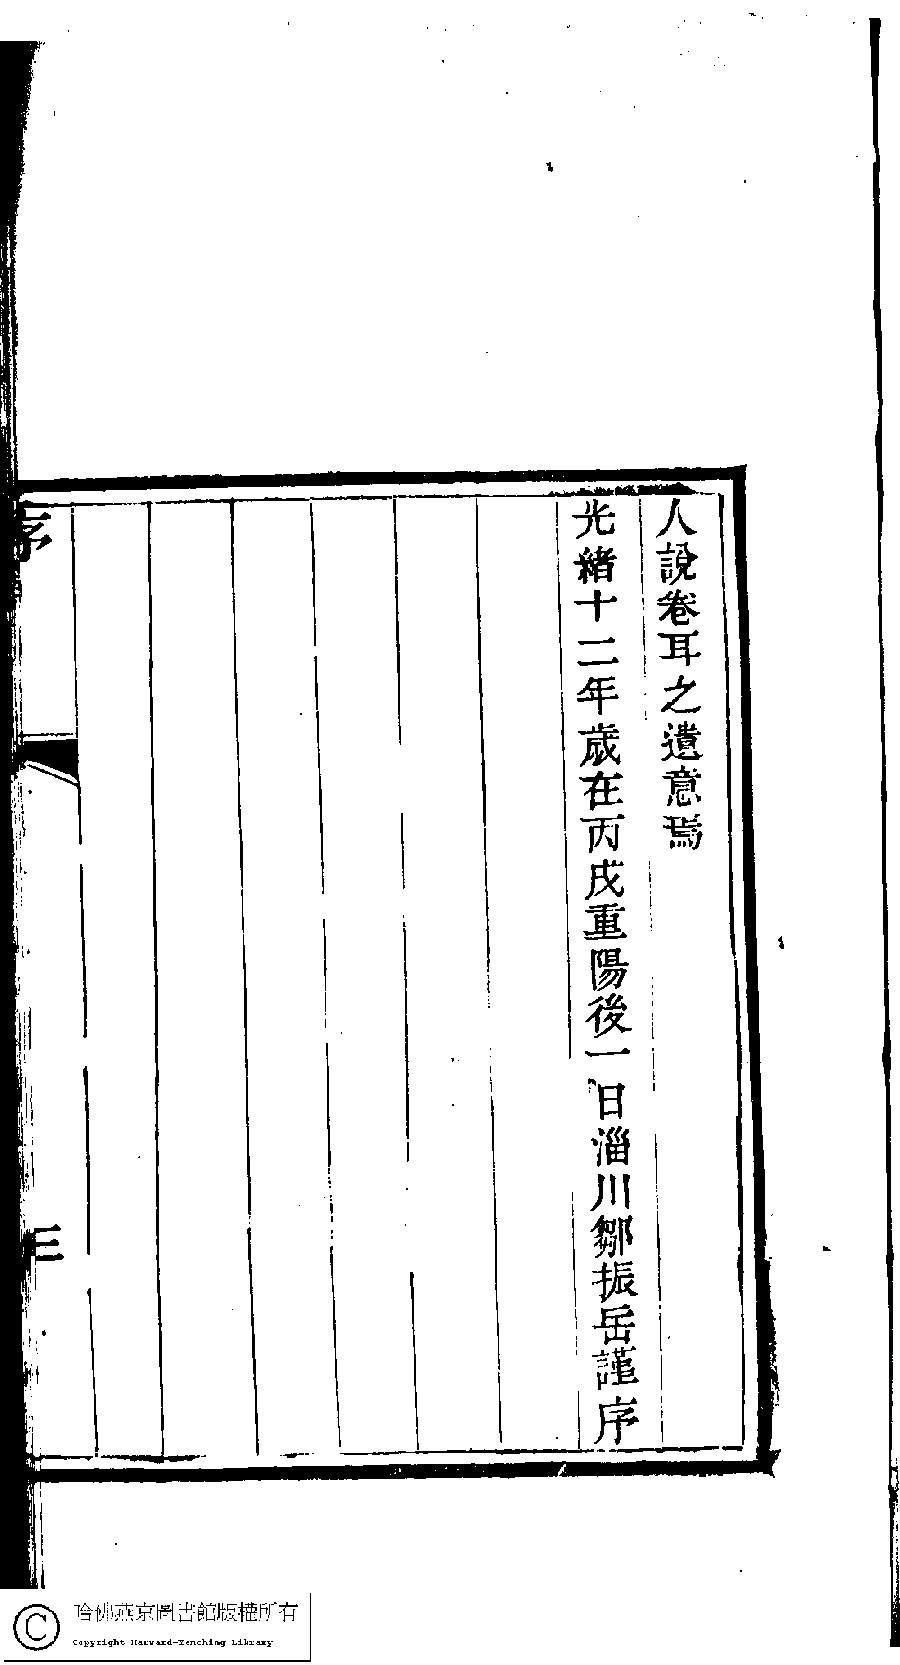 人說卷耳之遺意焉
光緒十二年歲在丙戌重陽後一日淄川鄒振岳謹序
序
三
哈佛燕京圖書館版權所有
Copyright Harvard-Yenching Library